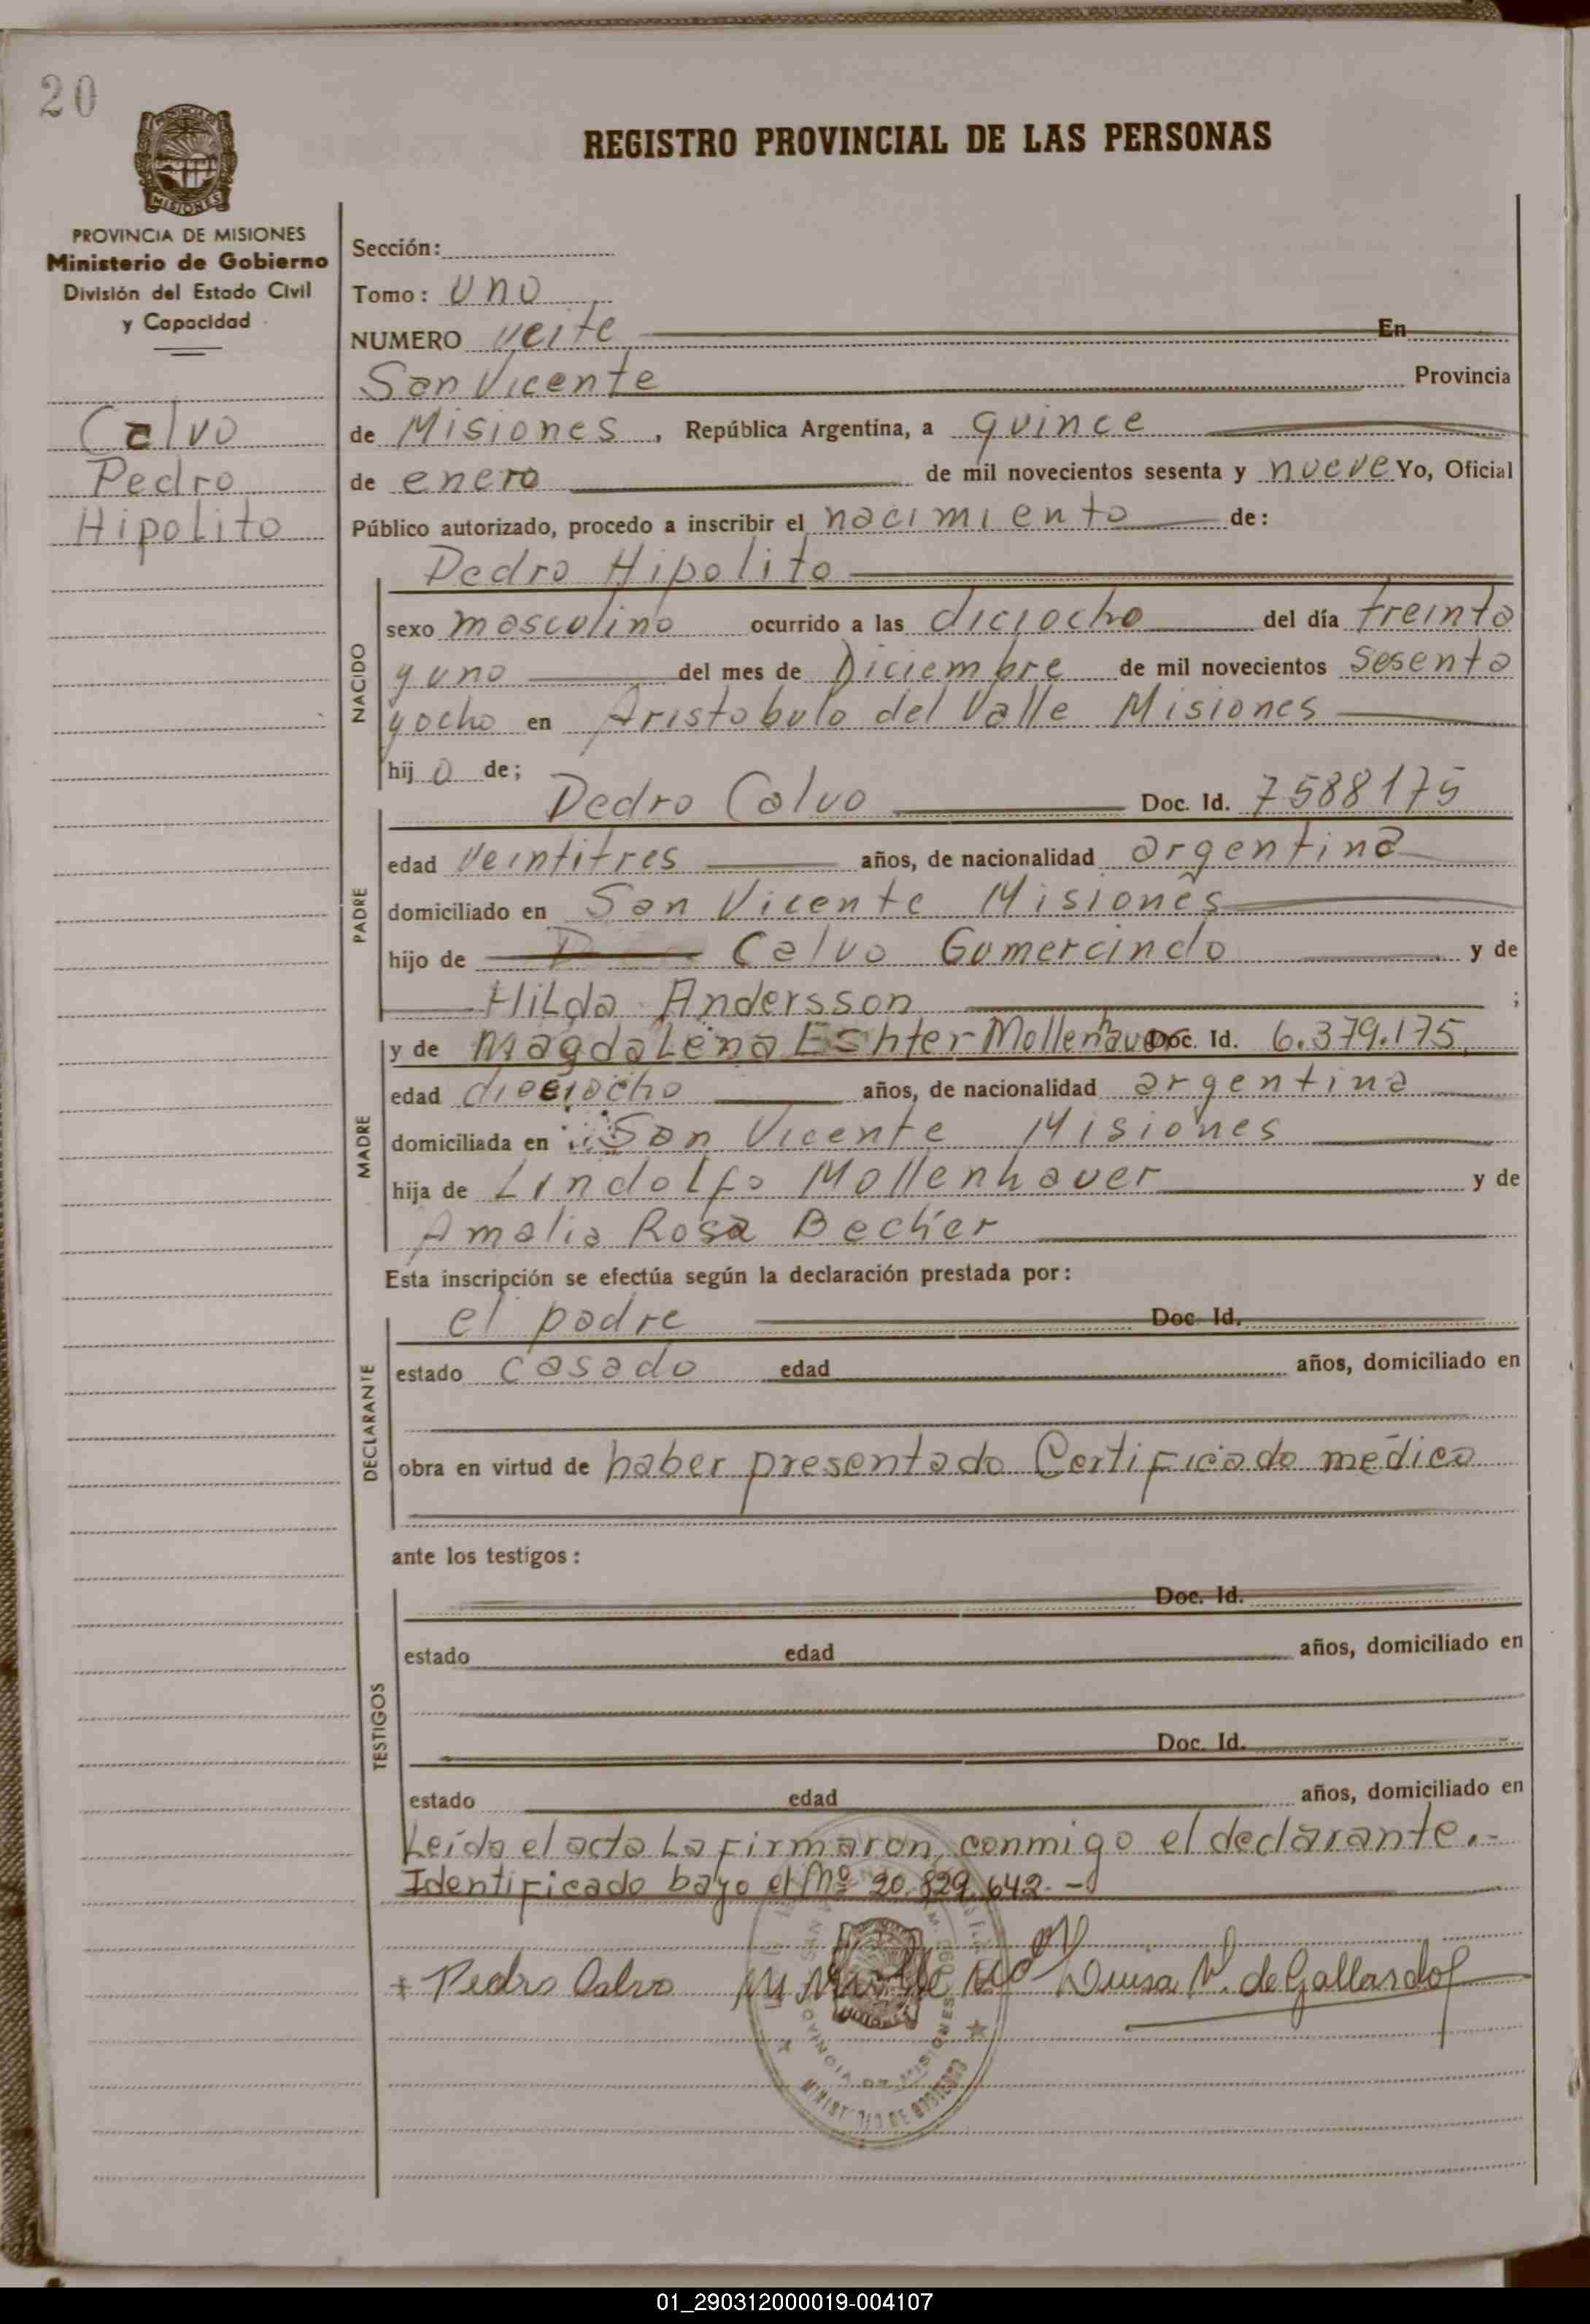 20
REGISTRO PROVINCIAL DE LAS PERSONAS
PROVINCIA DE MISIONES
Ministerio de Gobierno
División del Estado Civil
y Capacidad
Calvo
Pedro
Hipolito
Sección:
Tomo: uno
NUMERO veite En
San Vicente Provincia
de Misiones, República Argentina, a quince
de enero de mil novecientos sesenta y nueve Yo, Oficial
Público autorizado, procedo a inscribir el nacimiento de:
Pedro Hipolito
NACIDO
sexo masculino ocurrido a las diciocho del día treinta
y uno del mes de Diciembre de mil novecientos sesenta
y ocho en Aristobulo del Valle Misiones
hij o de;
Pedro Calvo Doc. Id. 7588175
PADRE
edad veintitres años, de nacionalidad argentina
domiciliado en San Vicente Misiones
hijo de Calvo Gumercindo y de
Hilda Andersson ;
MADRE
y de Magdalena Eshter Mollenhauer Doc. Id. 6.379.175
edad dieciocho años, de nacionalidad argentina
domiciliada en San Vicente Misiones
hija de Lindolfo Mollenhauer y de
Amalia Rosa Becker
Esta inscripción se efectúa según la declaración prestada por:
DECLARANTE
el padre Doc. Id.
estado casado edad años, domiciliado en
obra en virtud de haber presentado Certificado médico
ante los testigos:
TESTIGOS
Doc. Id.
estado edad años, domiciliado en
Doc. Id.
estado edad años, domiciliado en
Leída el acta la firmaron, conmigo el declarante.-
Identificado bajo el Nº 20.829.642.-
Pedro Calvo Luisa V. de Gallardo
PROVINCIA DE MISIONES
MINISTERIO DE GOBIERNO
01_290312000019-004107